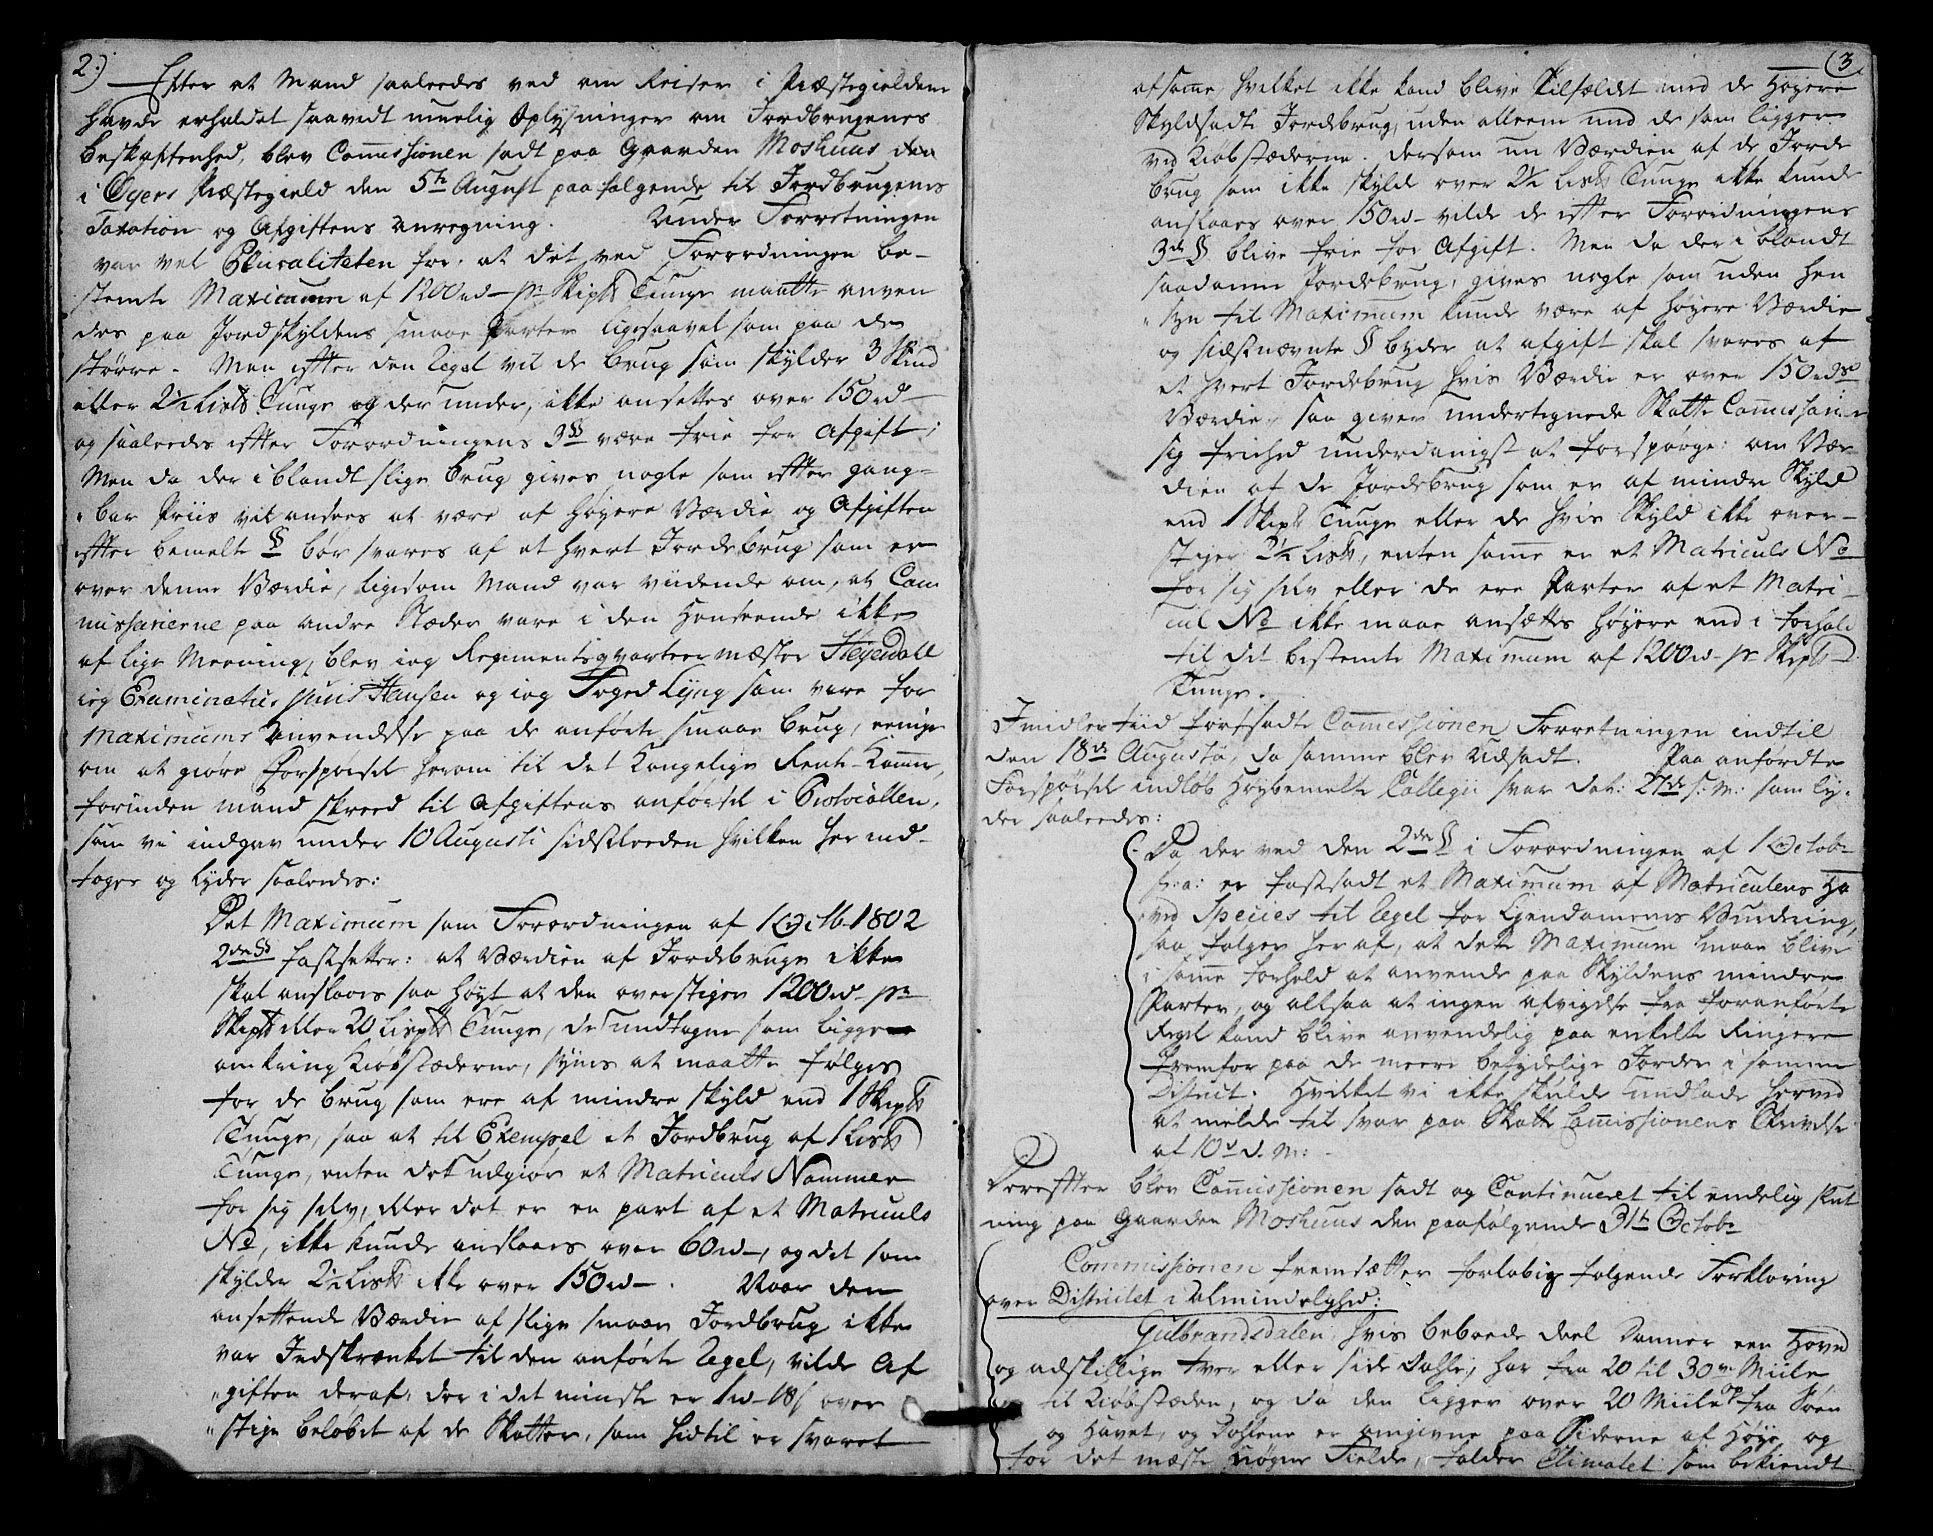 2.)
Efter at Mand saaledes ved em Reiser i Præstegieldene
havde erholdet saavidt muelig Oplysninger om Jordbrugenes
beskaffenhed, blev Commissionen sadt paa Gaarden Moshuus den
i Øyers Præstegield den 5te August paafølgende til Jordbrugenes
Taxation og Afgiftens anregning. Under Forretningen
var vel Pluraliteten for, at det ved Forordningen be-
stemte Maximum af 1200 rd pr Skipd Tunge maatte anven
des paa Jordskyldens smaae Parter ligesaavel som paa de
større. Men efter den Regel vil de brug som skylder 3 Skind
eller 2½ Lispd Tunge og der under, ikke ansettes over 150 rd
og saaledes efter Forordningens 3 § være frie for Afgift;
Men da der iblandt slige brug gives nogle som efter gang-
bar Priis vil ansees at være af høyere Værdie og Afgiften
efter bemelte § bør svares af et hvert Jordebrug som er
over denne Værdie, ligesom Mand var viidende om, at Com
missarierne paa andre Stæder vare i den Henseende ikke
af lige Meening, blev ieg Regimentsqvarteermæster Heyerdall
ieg Examinatus juris Hansen og ieg Foged Lyng som vare for
Maximums Anvendelse paa de anførte smaae brug, eenige
om at giøre Forspørsel herom til det Kongelige Rente-Kammer,
forinden mand skreed til Afgiftens anførsel i Protocollen,
som vi indgav under 10 Augusti sidstleeden hvilken her ind-
tages og lyder saaledes:
Det Maximum som Forordningen af 1 Octb. 1802
2den § fastsetter: at Værdien af Jordebruge ikke
skal anslaaes saa høyt at den overstiger 1200 rd pr
Skipd eller 20 Lispd Tunge, de undtagne som ligger
omkring Kiøbstæderne, synes at maatte følges
for de brug som ere af mindre skyld end 1 Skipd
Tunge, saa at til Exempel et Jordbrug af 1 Lispd
Tunge, enten det udgiør et Matriculs Nommer
for sig selv, eller det er en part af et Matriculs
No, ikke kunde anslaaes over 60 rd, og det som
skylder 2½ Lispd ikke over 150 rd. Naar den
ansettende Værdie af slige smaae Jordbrug ikke
var Indskrænket til den anførte Regel, vilde Af
giften deraf, der i det minste er 1 rd over
stige beløbet af de Skatter, som hidtil er svaret
(3
af samme, hvilket ikke kand blive tilfældet med de Høyere
Skyldsadte Jordebrug, uden alleene med de som ligger
ved Kiøbstæderne. Dersom nu Værdien af de Jorde
brug som ikke skylde over 2½ Lispd Tunge ikke kunde
anslaaes over 150 rd vilde de efter Forordningens
3de § blive frie for Afgift. Men da der iblandt
saadanne Jordebrug, gives nogle som uden Hen
syn til Maximum kunde være af høyere Værdie
og sidstnævnte § byder at afgift skal svares af
et hvert Jordebrug hvis Værdie er over 150 rds
Værdie, saa giver undertegnede Skatte Commissarier
sig friehed underdanigst at forspørge: om Vær
dien af de Jordebrug som er af mindre Skyld
end 1 Skipd Tunge eller de hvis Skyld ikke over-
stiger 2½ Lispd, enten samme er et Matriculs No
for sig selv eller de ere Parter af et Matri-
cul No ikke maae ansættes høyere end i forhold
til det bestemte Maximum af 1200 rd pr Skipd
Tunge.
Imidlertiid fortsadte Commissionen Forretningen indtil
den 18de Augusti, da samme blev Udsadt. Paa anførdte
Forspørsel indløb Høybemelte Collegii svar dat: 27de s: m: som ly-
der saaledes:
Da der ved den 2den § i Forordningen af 1 Octobr
f: a: er fastsadt et Maximum af Matriculens Ho
ved Species til Regel for Eyendommenes Vurdering,
saa følger her af, at dette Maximum maae blive
i samme forhold at anvende paa Skyldens mindre
Parter, og altsaa at ingen afvigelse fra foranførte
Regel kand blive anvendelig paa enkelte Ringere
fremfor paa de meere betydelige Jorder i samme
District. Hvilket vi ikke skulde undlade herved
at melde til svar paa Skatte Commissionens Skrivelse
af 10d d. M:
Derefter blev Commissionen sadt og Continueret til endelig slut
ning paa Gaarden Moshuus den paafølgende 31te Octobr
Commissionen fremsætter forløbig følgende Forklaring
over Districtet i Almindelighed:
Gulbrandsdalen, hvis beboede deel Danner een Hoved
og adskillige tver eller side Dahle, har fra 20 til 30ve Miile
til Kiøbstæden, og da den ligger over 20 Miile op fra Søen
og Havet, og Dahlene er omgivne paa Siderne af Høye og
for det mæste nøgne Fielde, falder Climatet som bekiendt